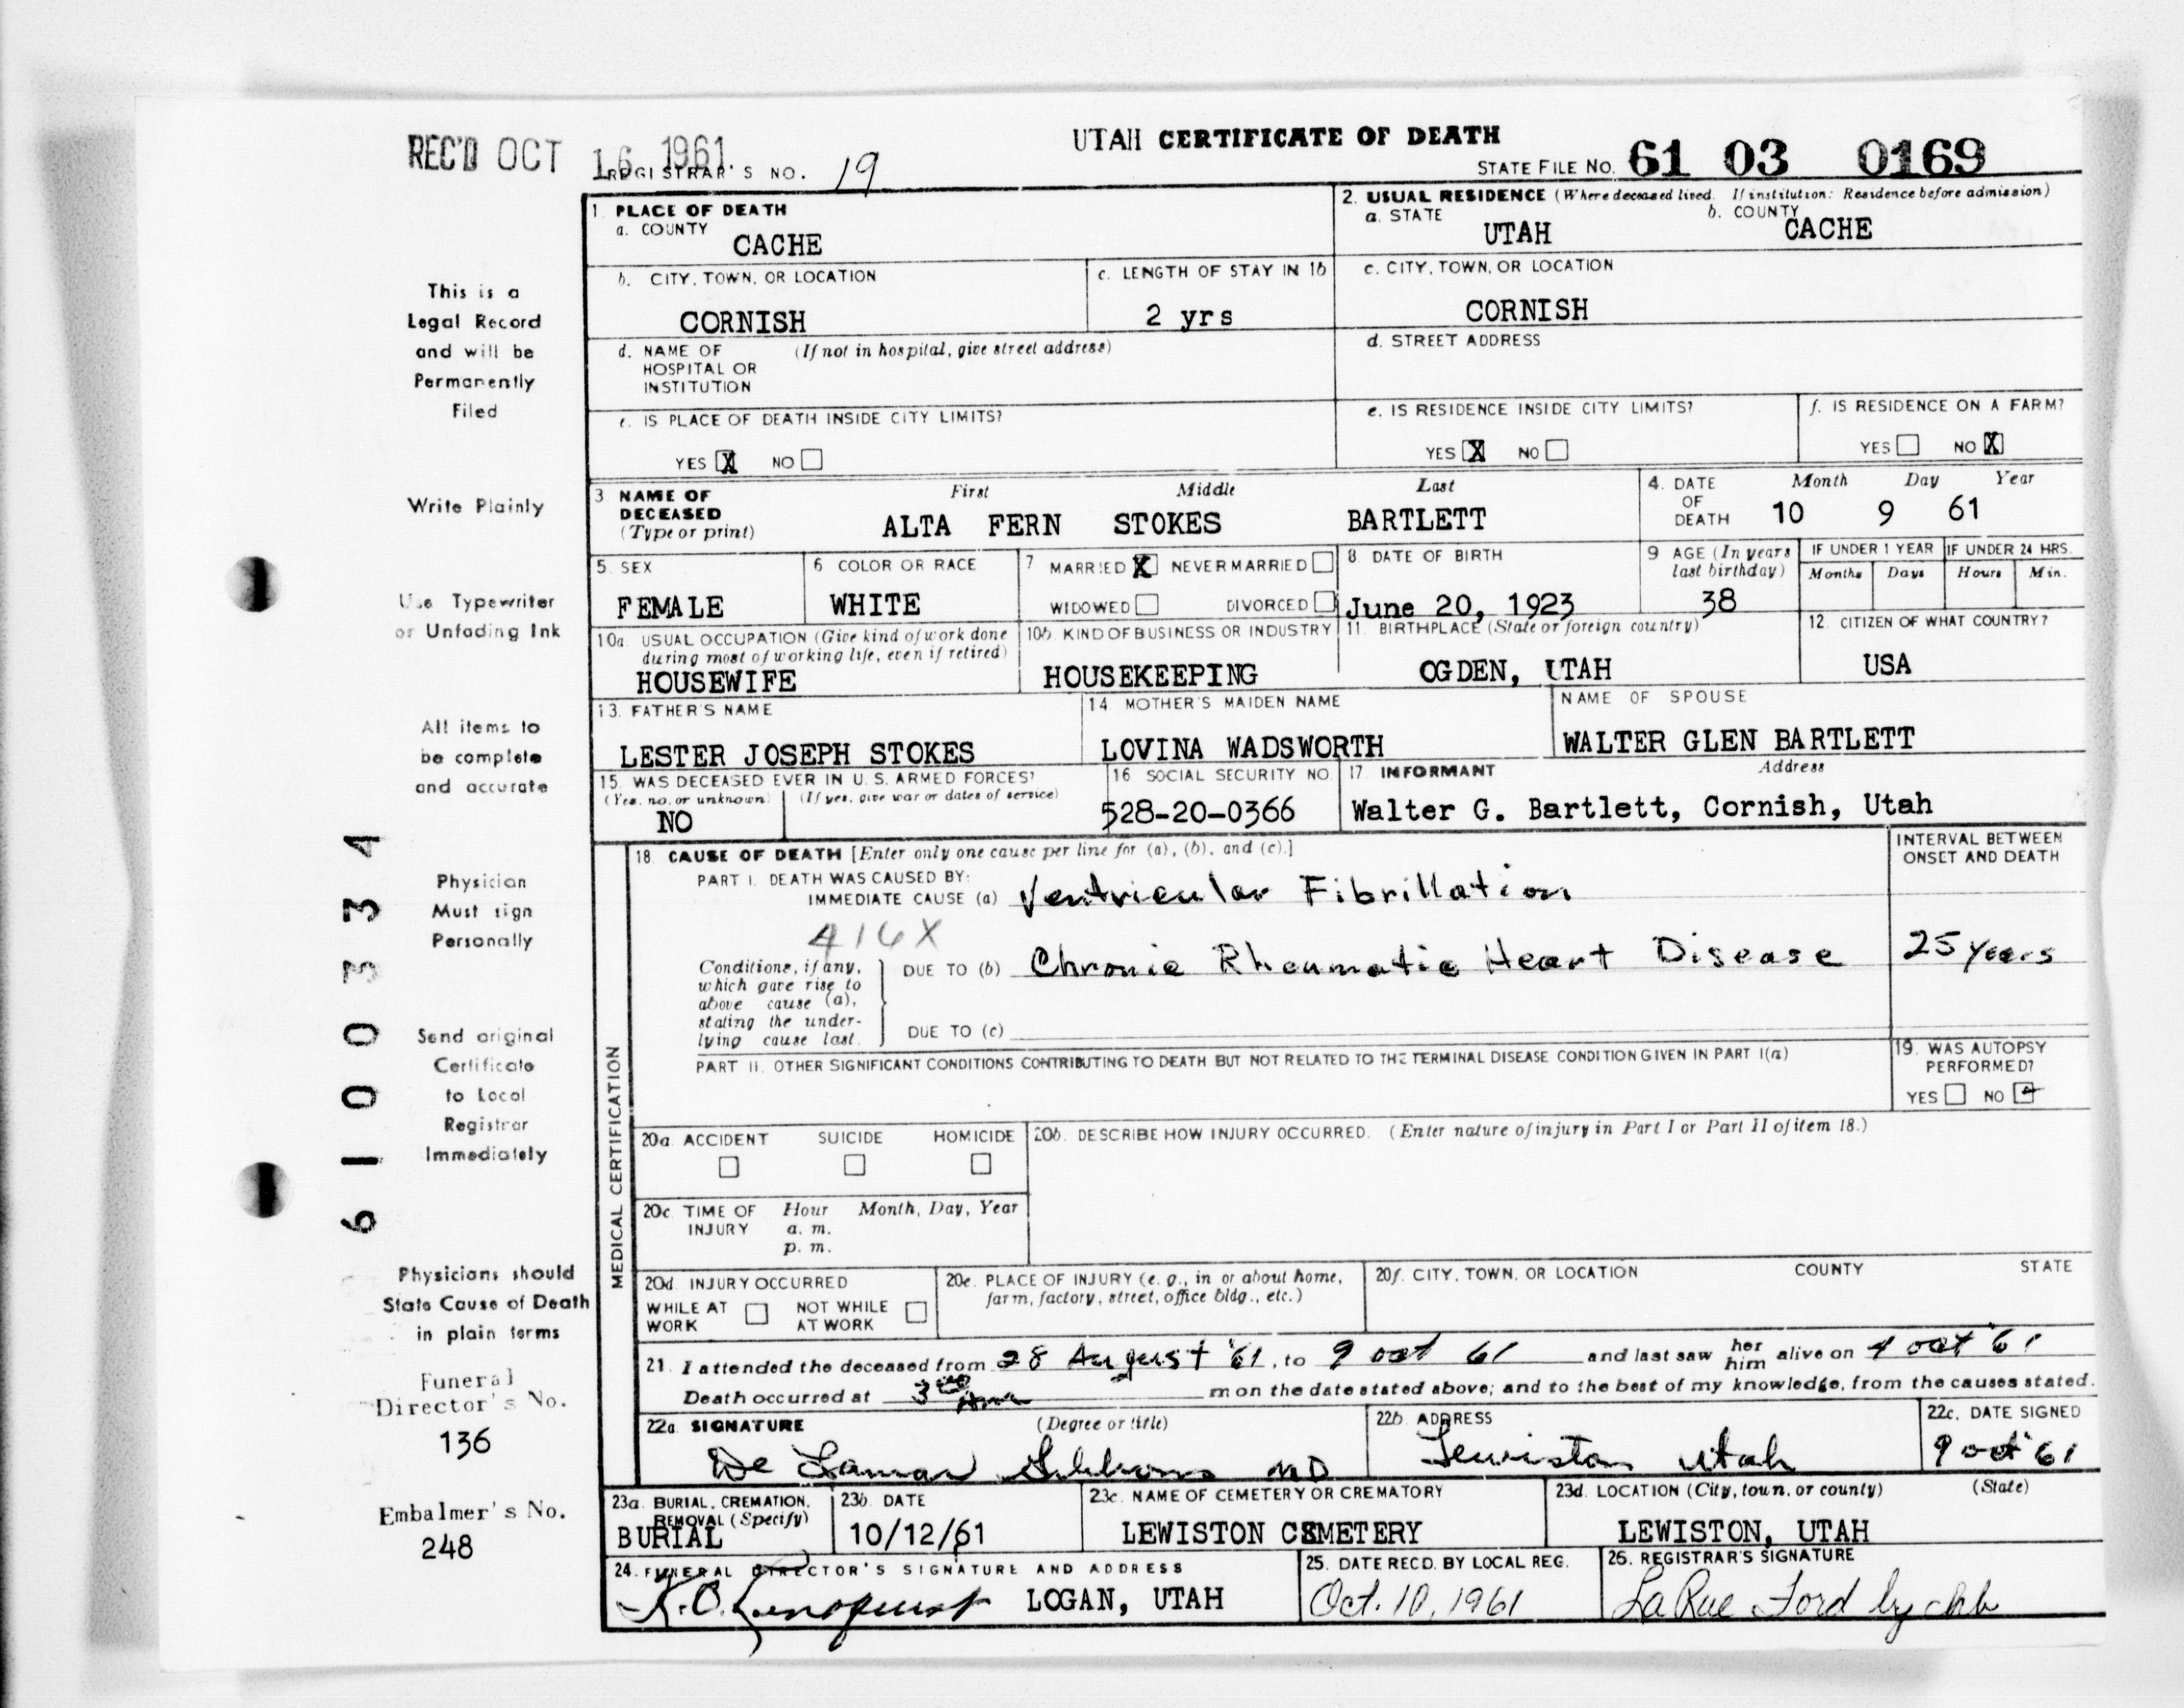 REC'D OCT 16 1961
UTAH CERTIFICATE OF DEATH
REGISTRAR'S NO. 19
STATE FILE NO. 61 03 0169
1. PLACE OF DEATH
a. COUNTY
CACHE
2. USUAL RESIDENCE (Where deceased lived. If institution: Residence before admission)
a. STATE
UTAH
b. COUNTY
CACHE
b. CITY, TOWN, OR LOCATION
CORNISH
c. LENGTH OF STAY IN 1b
2 yrs
c. CITY, TOWN, OR LOCATION
CORNISH
d. NAME OF (If not in hospital, give street address)
HOSPITAL OR
INSTITUTION
d. STREET ADDRESS
e. IS PLACE OF DEATH INSIDE CITY LIMITS?
YES X NO
e. IS RESIDENCE INSIDE CITY LIMITS?
YES X NO
f. IS RESIDENCE ON A FARM?
YES NO X
3 NAME OF
DECEASED
(Type or print)
First Middle Last
ALTA FERN STOKES BARTLETT
4. DATE
OF
DEATH
Month Day Year
10 9 61
5. SEX
FEMALE
6 COLOR OR RACE
WHITE
7 MARRIED X NEVER MARRIED
WIDOWED DIVORCED
8 DATE OF BIRTH
June 20, 1923
9 AGE (In years
last birthday)
38
IF UNDER 1 YEAR
Months Days
IF UNDER 24 HRS.
Hours Min.
10a. USUAL OCCUPATION (Give kind of work done
during most of working life, even if retired)
HOUSEWIFE
10b. KIND OF BUSINESS OR INDUSTRY
HOUSEKEEPING
11. BIRTHPLACE (State or foreign country)
OGDEN, UTAH
12. CITIZEN OF WHAT COUNTRY?
USA
13. FATHER'S NAME
LESTER JOSEPH STOKES
14 MOTHER'S MAIDEN NAME
LOVINA WADSWORTH
NAME OF SPOUSE
WALTER GLEN BARTLETT
15. WAS DECEASED EVER IN U.S. ARMED FORCES?
(Yes, no, or unknown) (If yes, give war or dates of service)
NO
16 SOCIAL SECURITY NO.
528-20-0366
17. INFORMANT Address
Walter G. Bartlett, Cornish, Utah
MEDICAL CERTIFICATION
18. CAUSE OF DEATH [Enter only one cause per line for (a), (b), and (c).]
INTERVAL BETWEEN
ONSET AND DEATH
PART I. DEATH WAS CAUSED BY:
IMMEDIATE CAUSE (a) Ventricular Fibrillation
416X
Conditions, if any,
which gave rise to
above cause (a),
stating the under-
lying cause last.
DUE TO (b) Chronic Rheumatic Heart Disease
25 years
DUE TO (c)
PART II. OTHER SIGNIFICANT CONDITIONS CONTRIBUTING TO DEATH BUT NOT RELATED TO THE TERMINAL DISEASE CONDITION GIVEN IN PART I(a)
19. WAS AUTOPSY
PERFORMED?
YES NO
20a. ACCIDENT SUICIDE HOMICIDE
20b. DESCRIBE HOW INJURY OCCURRED. (Enter nature of injury in Part I or Part II of item 18.)
20c. TIME OF Hour Month, Day, Year
INJURY a. m.
p. m.
20d. INJURY OCCURRED
WHILE AT NOT WHILE
WORK AT WORK
20e. PLACE OF INJURY (e. g., in or about home,
farm, factory, street, office bldg., etc.)
20f. CITY, TOWN, OR LOCATION COUNTY STATE
21. I attended the deceased from 28 August '61, to 9 oct 61 and last saw her him alive on 4 oct '61
Death occurred at 3 00 Am m on the date stated above; and to the best of my knowledge, from the causes stated.
22a. SIGNATURE (Degree or title)
De Lamar Gibbons MD
22b. ADDRESS
Lewiston Utah
22c. DATE SIGNED
9 oct '61
23a. BURIAL, CREMATION,
REMOVAL (Specify)
BURIAL
23b. DATE
10/12/61
23c. NAME OF CEMETERY OR CREMATORY
LEWISTON CEMETERY
23d. LOCATION (City, town, or county) (State)
LEWISTON, UTAH
24. FUNERAL DIRECTOR'S SIGNATURE AND ADDRESS
K.O. Lindquist LOGAN, UTAH
25. DATE RECD. BY LOCAL REG.
Oct. 10, 1961
26. REGISTRAR'S SIGNATURE
La Rue Ford by chb
This is a
Legal Record
and will be
Permanently
Filed
Write Plainly
Use Typewriter
or Unfading Ink
All items to
be complete
and accurate
Physician
Must sign
Personally
Send original
Certificate
to Local
Registrar
Immediately
Physicians should
State Cause of Death
in plain terms
Funeral
Director's No.
136
Embalmer's No.
248
61003334